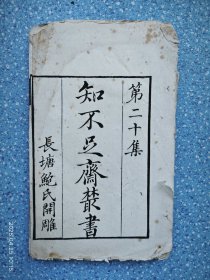 第二十集
知不足齋叢書
長塘鮑氏開雕